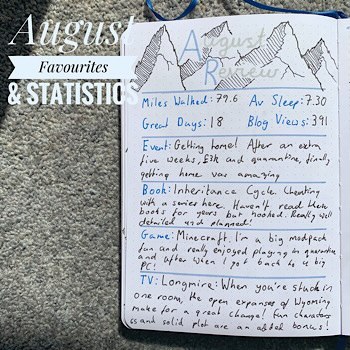 August
Favourites
& STATISTICS
August
Review
Miles Walked: 79.6 Av Sleep: 7.30
Great Days: 18 Blog Views: 391
Event: Getting home! After an extra
five weeks, £3k and quarantine, finally
getting home was amazing
Book: Inheritance Cycle. Cheating
with a series here. Haven't read these
books for years but hooked. Really well
detailed and planned!
Game: Minecraft. I'm a big modpack
fan and really enjoyed playing in quarantine
and after when I got back to my big
PC!
TV: Longmire: When you're stuck in
one room, the open expanses of Wyoming
make for a great change! Fun characters
and solid plot are an added bonus!